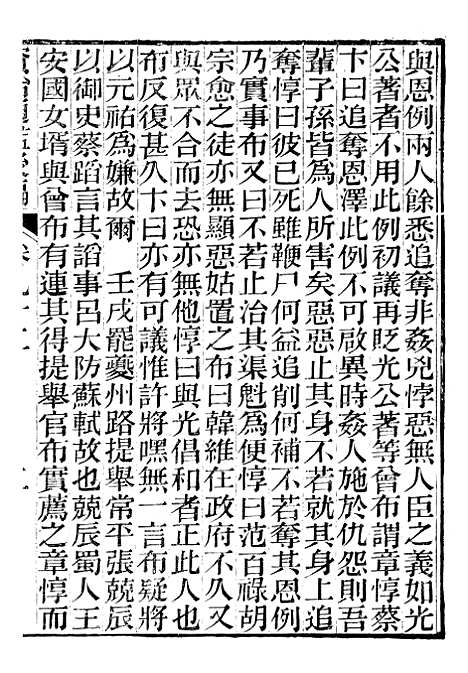 與恩例兩人餘悉追奪非姦兇悖惡無人臣之義如光
公著者不用此例初議再貶光公著等曾布謂章惇蔡
卞曰追奪恩澤此例不可啟異時姦人施於仇怨則吾
輩子孫皆爲人所害矣惡惡止其身不若就其身上追
奪惇曰彼已死雖鞭尸何益追削何補不若奪其恩例
乃實事布又曰不若止治其渠魁爲便惇曰范百祿胡
宗愈之徒亦無顯惡姑置之布曰韓維在政府不久又
與眾不合而去恐亦無他惇曰與光倡和者正此人也
布反復甚久卞曰亦有可議惟許將嘿無一言布疑將
以元祐爲嫌故爾 壬戌罷夔州路提舉常平張兢辰
以御史蔡蹈言其諂事呂大防蘇軾故也兢辰蜀人王
安國女壻與曾布有連其得提舉官布實薦之章惇而